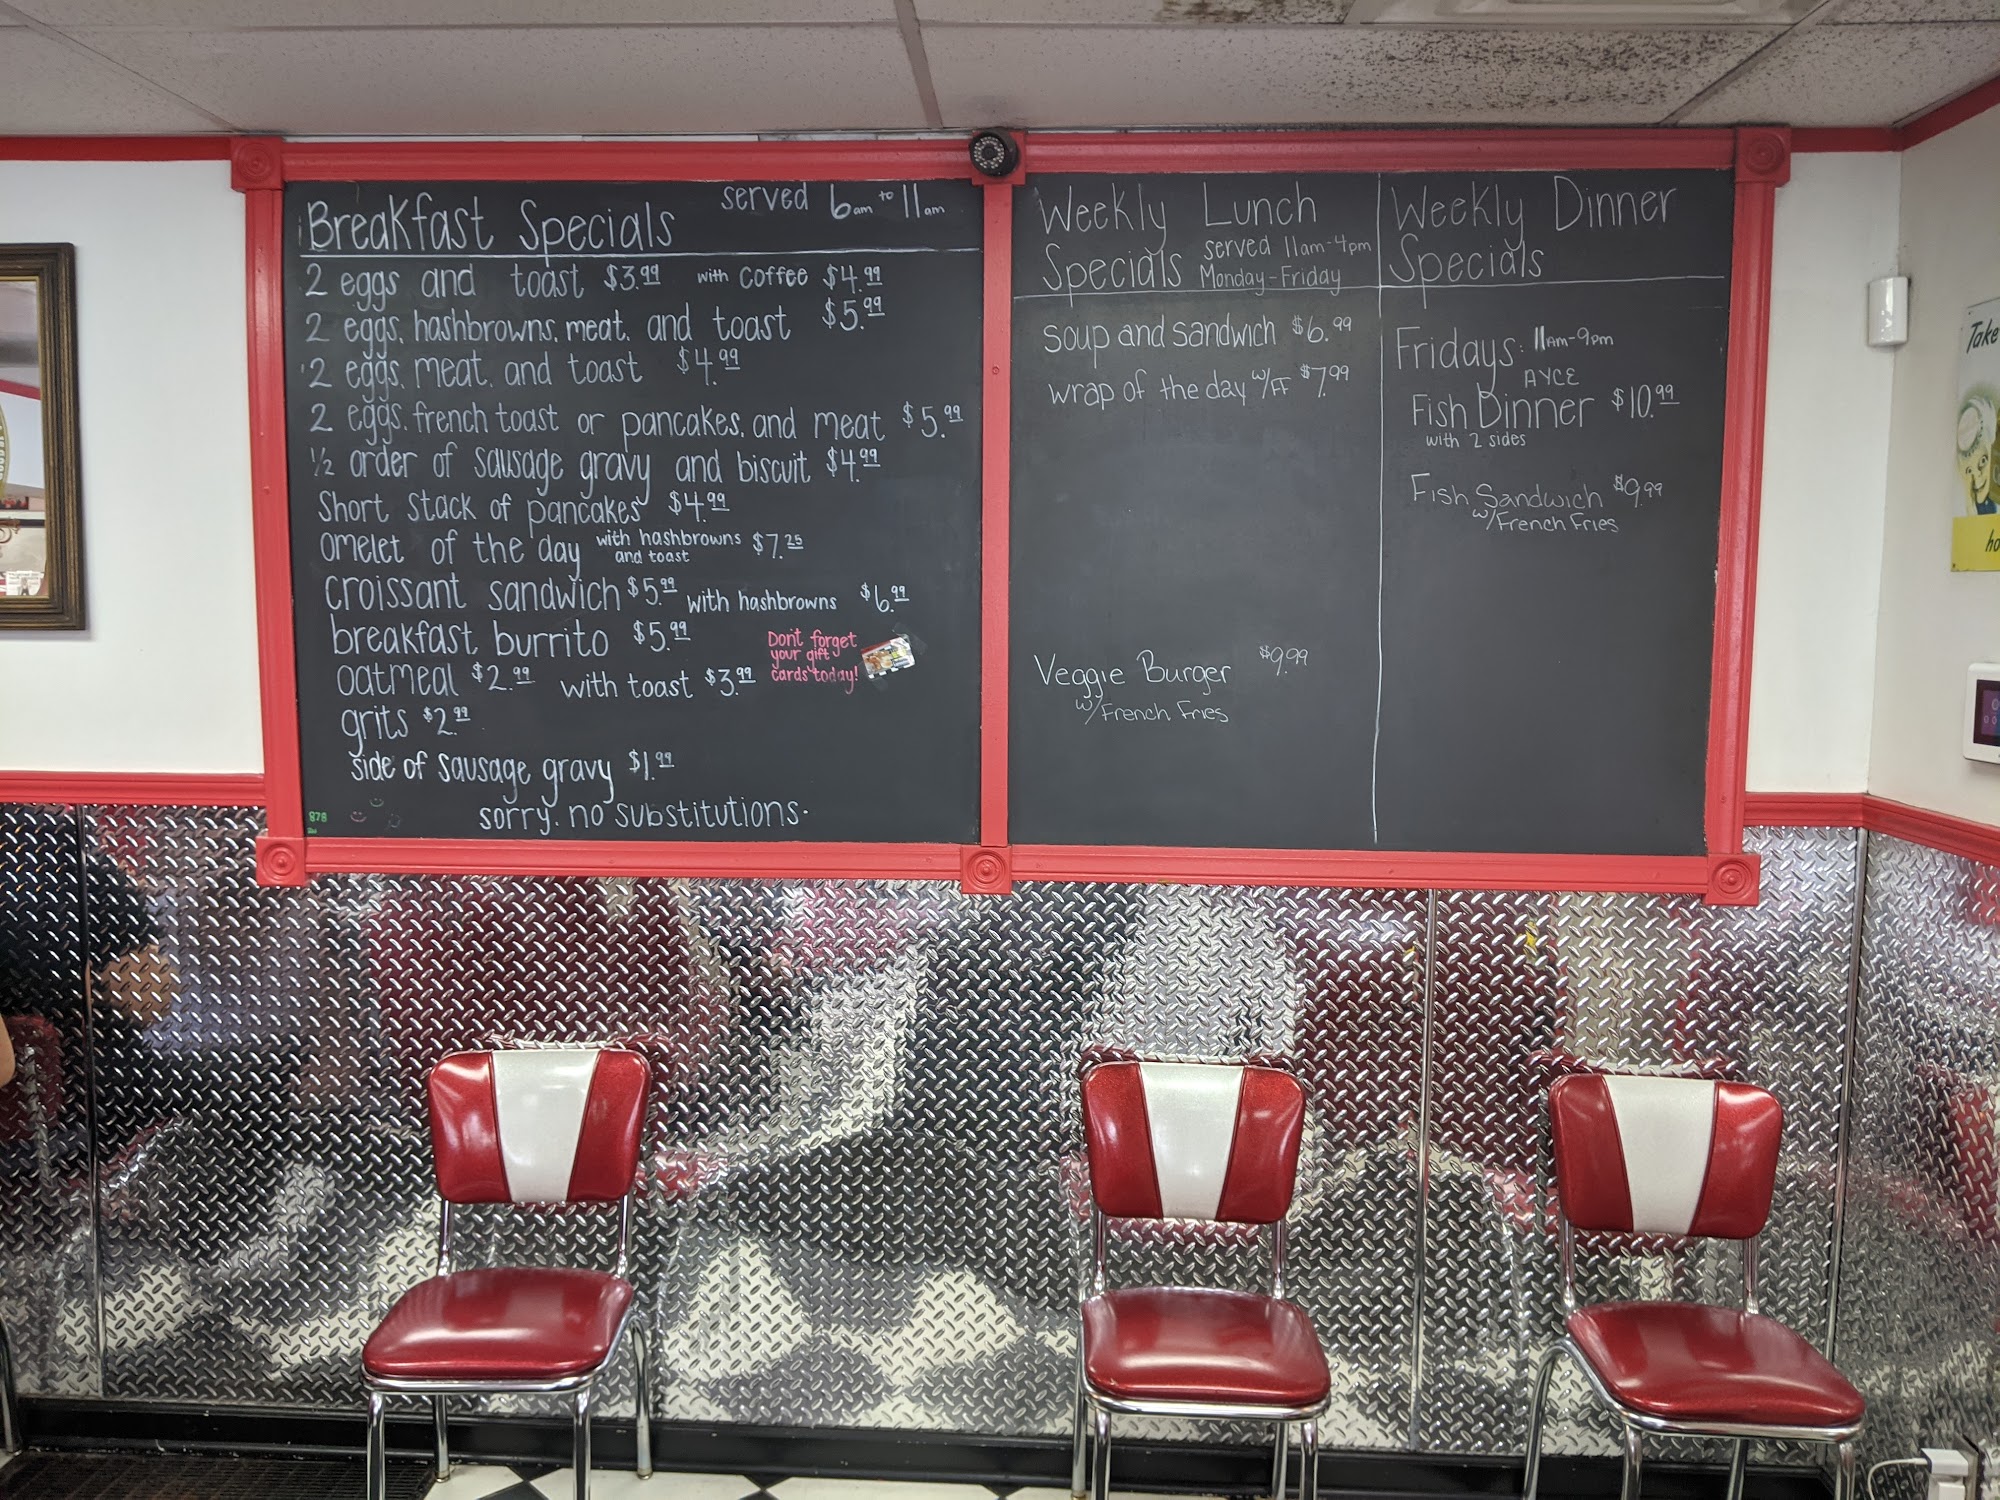 Breakfast Specials served 6am to 11am
2 eggs and toast $3.99 with coffee $4.99
2 eggs, hashbrowns, meat, and toast $5.99
2 eggs, meat, and toast $4.99
2 eggs, french toast or pancakes, and meat $5.99
1/2 order of sausage gravy and biscuit $4.99
Short stack of pancakes $4.99
omelet of the day with hashbrowns and toast $7.25
croissant sandwich $5.99 with hashbrowns $6.99
breakfast burrito $5.99
oatmeal $2.99 with toast $3.99
grits $2.99
side of sausage gravy $1.99
sorry, no substitutions.
Don't forget
your gift
cards today!
878
Weekly Lunch
Specials served 11am-4pm
Monday-Friday
soup and sandwich $6.99
wrap of the day w/FF $7.99
Veggie Burger $9.99
w/French Fries
Weekly Dinner
Specials
Fridays: 11am-9pm
AYCE
Fish Dinner $10.99
with 2 sides
Fish Sandwich $9.99
w/French Fries
Take
ho